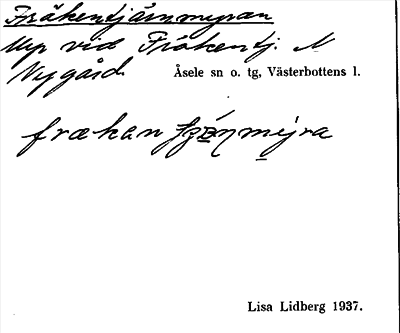 Fräkentjärnmyran
Myr vid Fräkentj. N
Nygård. Åsele sn o. tg, Västerbottens l.
frækan
Lisa Lidberg 1937.